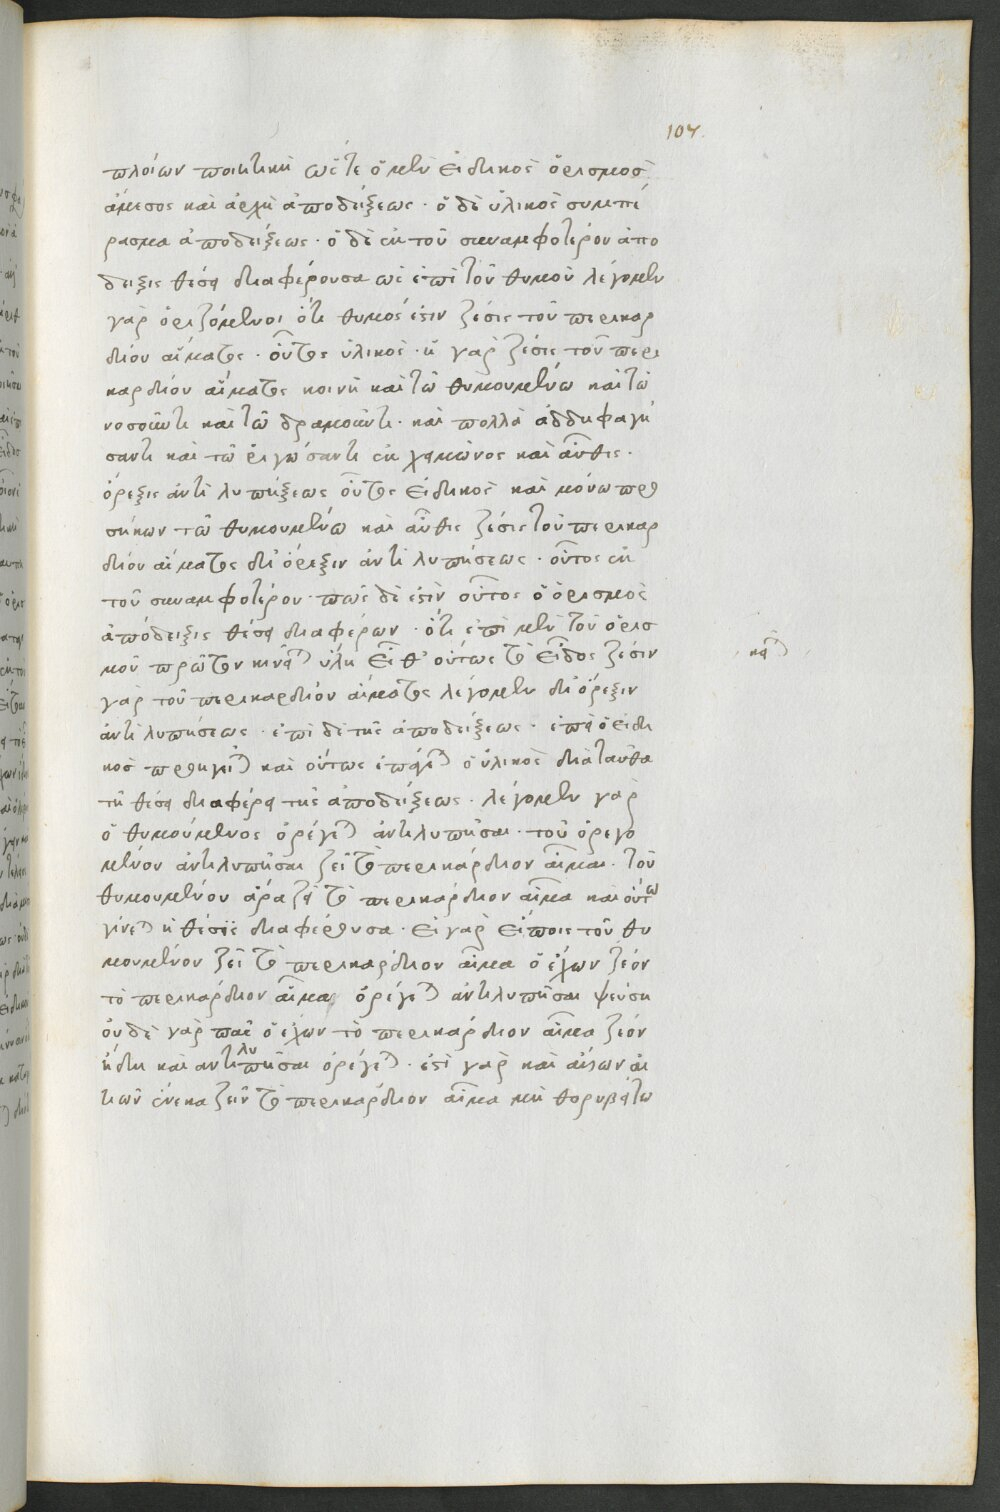 107
πλοίων ποιητικὴ ὥστε ὁ μὲν εἰδικὸς ὁρισμὸς
ἄμεσος καὶ ἀρχὴ ἀποδείξεως · ὁ δὲ ὑλικὸς συμπέ
ρασμα ἀποδείξεως · ὁ δὲ ἐκ τοῦ συναμφοτέρου ἀπό
δειξις θέσει διαφέρουσα ὡς ἐπὶ τοῦ θυμοῦ λέγομεν
γὰρ ὁριζόμενοι ὅτι θυμός ἐστιν ζέσις τοῦ περικαρ
δίου αἵματος · οὗτος ὑλικός · ἡ γὰρ ζέσις τοῦ περι
καρδίου αἵματος κοινὴ καὶ τῶ θυμουμένω καὶ τῶ
νοσοῦντι καὶ τῶ δραμόντι · καὶ πολλὰ ἀδδηφαγή
σαντι καὶ τῶ ῥιγώσαντι ἐκ χειμῶνος καὶ αὖθις ·
ὄρεξις ἀντιλυπήξεως οὗτος εἰδικὸς καὶ μόνω προ
σήκων τῶ θυμουμένω καὶ αὖθις ζέσις τοῦ περικαρ
δίου αἵματος δι' ὄρεξιν ἀντιλυπήσεως · οὗτος ἐκ
τοῦ συναμφοτέρου · πῶς δέ ἐστιν οὗτος ὁ ὁρισμὸς
ἀπόδειξις θέσει διαφέρων · ὅτι ἐπὶ μὲν τοῦ ὁρισ
μοῦ πρῶτον κινεῖται ὕλη εἶθ' οὕτως τὸ εἶδος ζέσιν
κεῖται
γὰρ τοῦ περικαρδίου αἵματος λέγομεν δι' ὄρεξιν
ἀντιλυπήσεως · ἐπὶ δὲ τῆς ἀποδείξεως · ἐπεὶ ὁ εἰδι
κὸς προηγεῖται καὶ οὕτως ἐπάγεται ὁ ὑλικὸς διὰ ταῦτα
τῆ θέσει διαφέρει τῆς ἀποδείξεως · λέγομεν γὰρ
ὁ θυμούμενος ὀρέγεται ἀντιλυπῆσαι · τοῦ ὀρεγο
μένου ἀντιλυπῆσαι ζεῖ τὸ περικάρδιον αἷμα · τοῦ
θυμουμένου ἄρα ζεῖ τὸ περικάρδιον αἷμα καὶ οὕτω
γίνεται ἡ θέσις διαφέρουσα · εἰ γὰρ εἴποις τοῦ θυ
μουμένου ζεῖ τὸ περικάρδιον αἷμα ὁ ἔχων ζέον
τὸ περικάρδιον αἷμα ὀρέγεται ἀντιλυπῆσαι ψεύση
οὐδὲ γὰρ πᾶς ὁ ἔχων τὸ περικάρδιον αἷμα ζέον
ἤδη καὶ αντιλυπῆσαι ὀρέγεται · ἔστι γὰρ καὶ ἄλλων αἰ
τιῶν ἕνεκα ζεῖν τὸ περικάρδιον αἷμα μὴ θορυβείτω